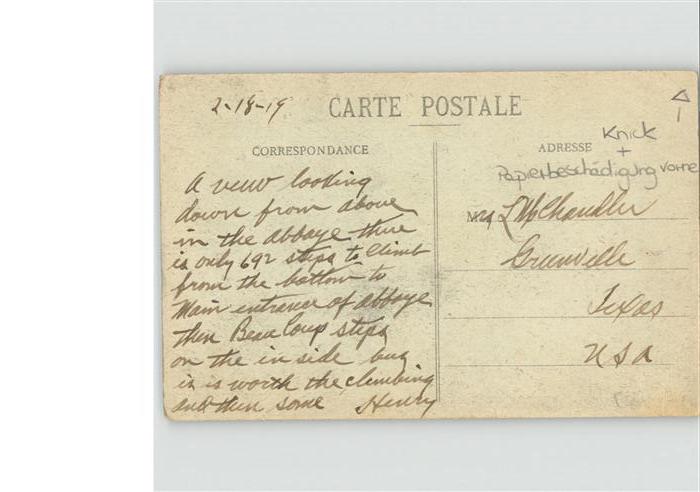 2-18-19
CARTE POSTALE
CORRESPONDANCE
A veiw looking
down from above
in the abbaye there
is only 692 steps to climb
from the bottom to
Main entrance of abbaye
then Beau Coup steps
on the in side but
it is worth the climbing
and then some Henry
Knick
+
ADRESSE
Papierbeschädigung vorne
L M Chandler
Greenville
Texas
U S A